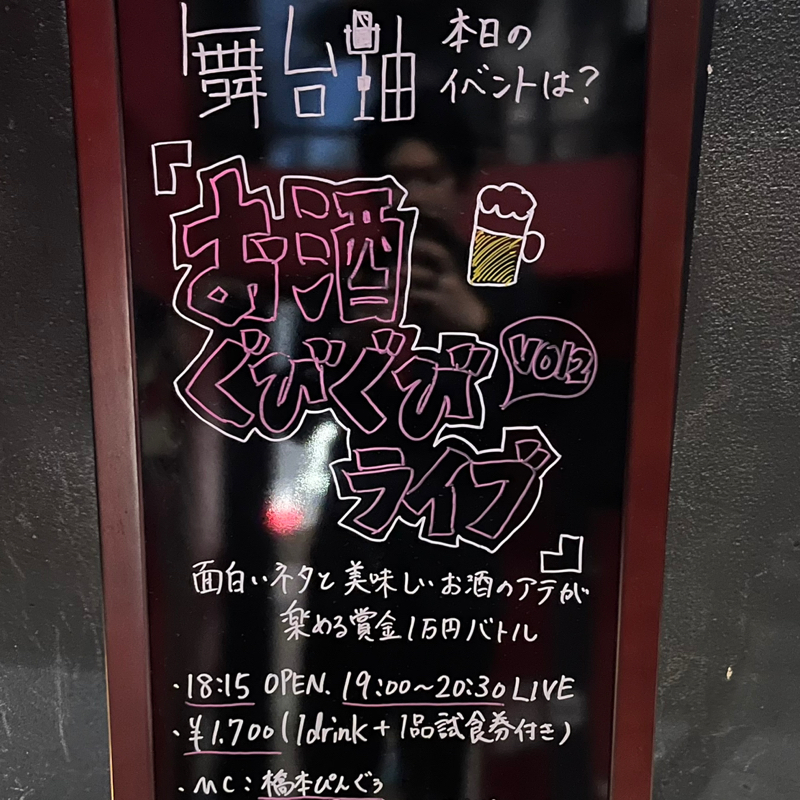 舞台袖
本日の
イベントは?
『お酒
ぐびぐび
VOl2
ライブ』
面白いネタと美味しいお酒のアテが
楽める賞金1万円バトル
・18:15 OPEN. 19:00〜20:30 LIVE
・¥1.700(1drink+1品試食券付き)
・MC:橋本ぴんぐぅ